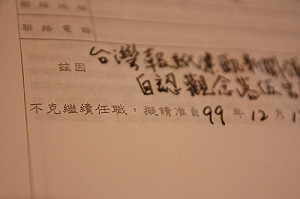 聯絡電話
茲因
台灣報紙業
自認觀念落伍
不克繼續任職，擬請准自99年12月1